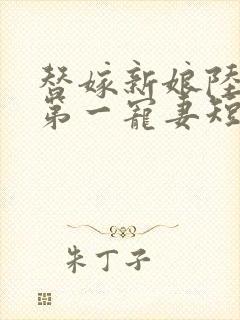 替嫁新娘陸
第一寵妻短
朱丁子